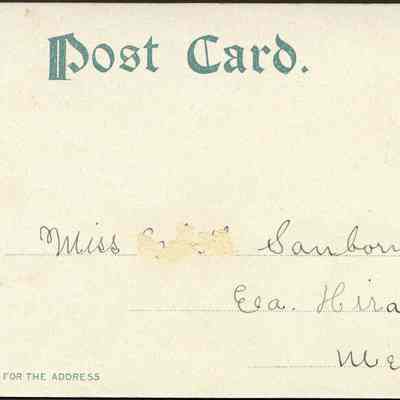 Post Card.
Miss Sanborn
Ea. Hira
Me
FOR THE ADDRESS